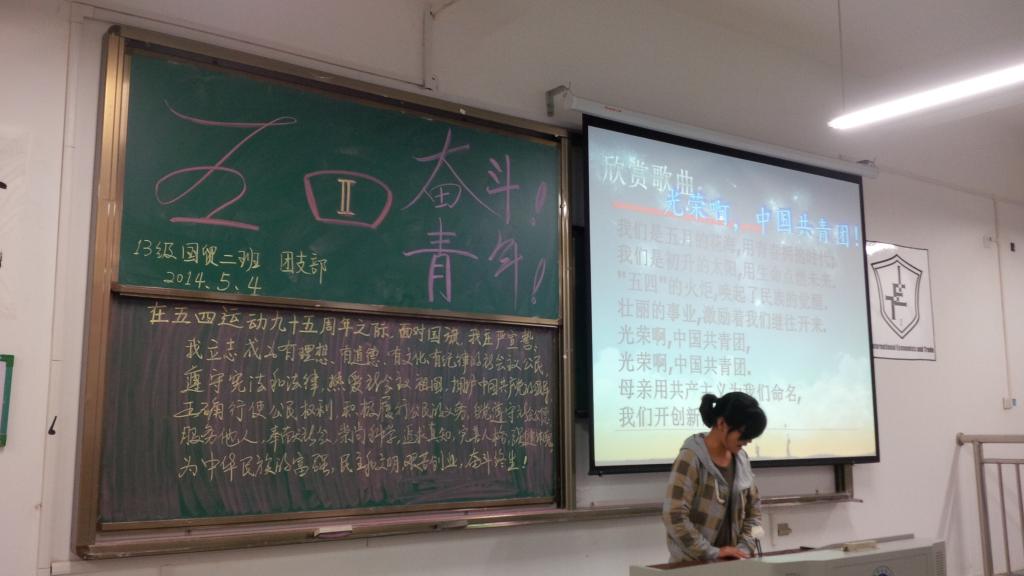 五四 奋斗!
II
青年!
13级国贸二班 团支部
2014.5.4
在五四运动九十五周年之际,面对国旗,我庄严宣誓:
我立志成为有理想、有道德、有文化、有纪律的社会主义公民
遵守宪法和法律,热爱社会主义祖国,拥护中国共产党的领导
正确行使公民权利,积极履行公民义务,自觉遵守社会公德
服务他人,奉献社会,崇尚科学,追求真知,完善人格,强健体魄
为中华民族的富强、民主和文明,艰苦创业,奋斗终生!
欣赏歌曲
光荣啊,中国共青团!
我们是五月的花海,用青春拥抱时代.
我们是初升的太阳,用生命点燃未来.
"五四"的火炬,唤起了民族的觉醒.
壮丽的事业,激励着我们继往开来.
光荣啊,中国共青团,
光荣啊,中国共青团.
母亲用共产主义为我们命名,
我们开创新
International Economics and Trade